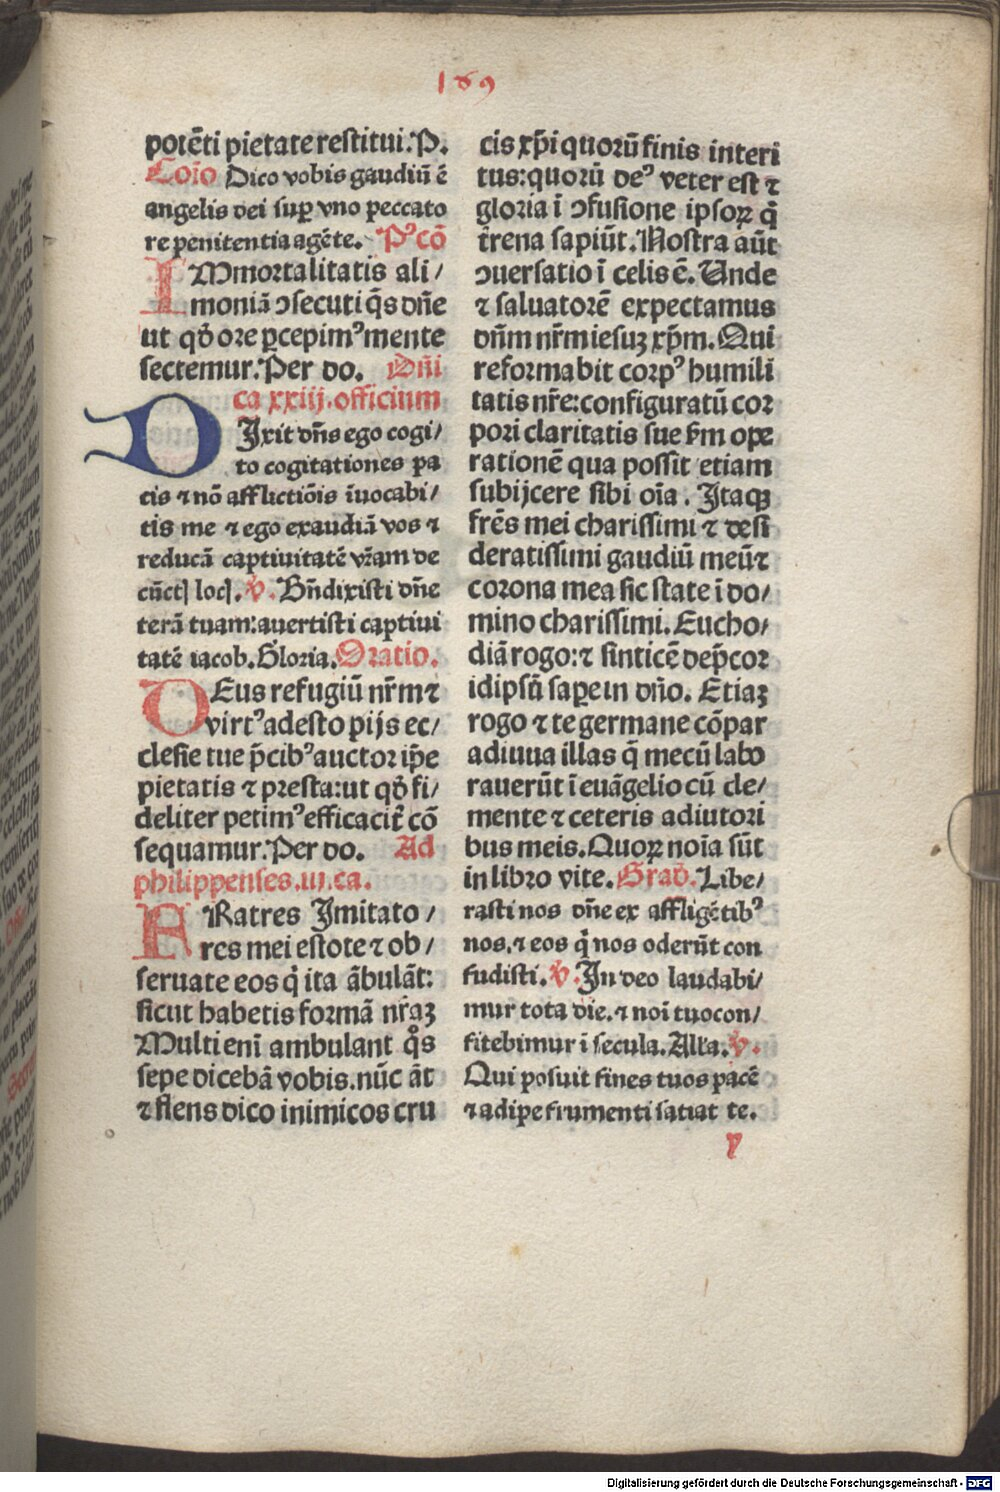 169
potēti pietate restitui. P.
Coīo Dico vobis gaudiū ē
angelis dei suꝑ vno peccato
re penitentia agēte. Pꝰcō
IMmortalitatis ali/
moniā ↄsecuti q̄s dn̄e
ut qḋ ore ꝑcepimꝰ mente
sectemur. Per do. Dn̄i
ca xxiij. officium
DIxit dn̄s ego cogi/
to cogitationes pa
cis ⁊ nō afflictiōis īuocabi/
tis me ⁊ ego exaudiā vos ⁊
reducā captiuitatē vr̄am de
cūctꝭ locꝭ. v. Bn̄dixisti dn̄e
terā tuam: auertisti captiui
tatē iacob. Gloria. Oratio.
DEus refugiū nr̄m ⁊
virtꝰ adesto pijs ec/
clesie tue p̄cibꝰ auctor ip̄e
pietatis ⁊ presta: ut qḋ fi/
deliter petimꝰ efficacit̄ cō
sequamur. Per do. Ad
philippenses. iii. ca.
FRatres Imitato/
res mei estote ⁊ ob/
seruate eos q̇ ita ābulāt:
sicut habetis formā nr̄aꝫ
Multi enī ambulant q̊s
sepe dicebā vobis. nūc āt
⁊ flens dico inimicos cru
cis xp̄i quorū finis interi
tus: quorū deꝰ veter est ⁊
gloria ī ↄfusione ipsoꝝ q̇
t̄rena sapiūt. Nostra aūt
ↄuersatio ī celis ē. Unde
⁊ saluatorē expectamus
dn̄m nr̄m iesuꝫ xp̄m. Qui
reformabit corpꝰ humili
tatis nr̄e: configuratū cor
pori claritatis sue ẜm ope
rationē qua possit etiam
subijcere sibi oīa. Itaqꝫ
fr̄es mei charissimi ⁊ desi
deratissimi gaudiū meū ⁊
corona mea sic state ī do/
mino charissimi. Eucho/
diā rogo: ⁊ sinticē dep̄cor
idipsū saꝑe in dn̄o. Etiaꝫ
rogo ⁊ te germane cōpar
adiuua illas q̄ mecū labo
rauerūt ī euāgelio cū cle/
mente ⁊ ceteris adiutori
bus meis. Quoꝝ noīa sūt
in libro vite. Grad̄. Libe/
rasti nos dn̄e ex affligētibꝰ
nos. ⁊ eos q̇ nos oderūt con
fudisti. v. In deo laudabi/
mur tota die. ⁊ noī tuo con/
fitebimur ī secula. All'a. v.
Qui posuit fines tuos pacē
⁊ adipe frumenti satiat te.
y
Digitalisierung gefördert durch die Deutsche Forschungsgemeinschaft - DFG